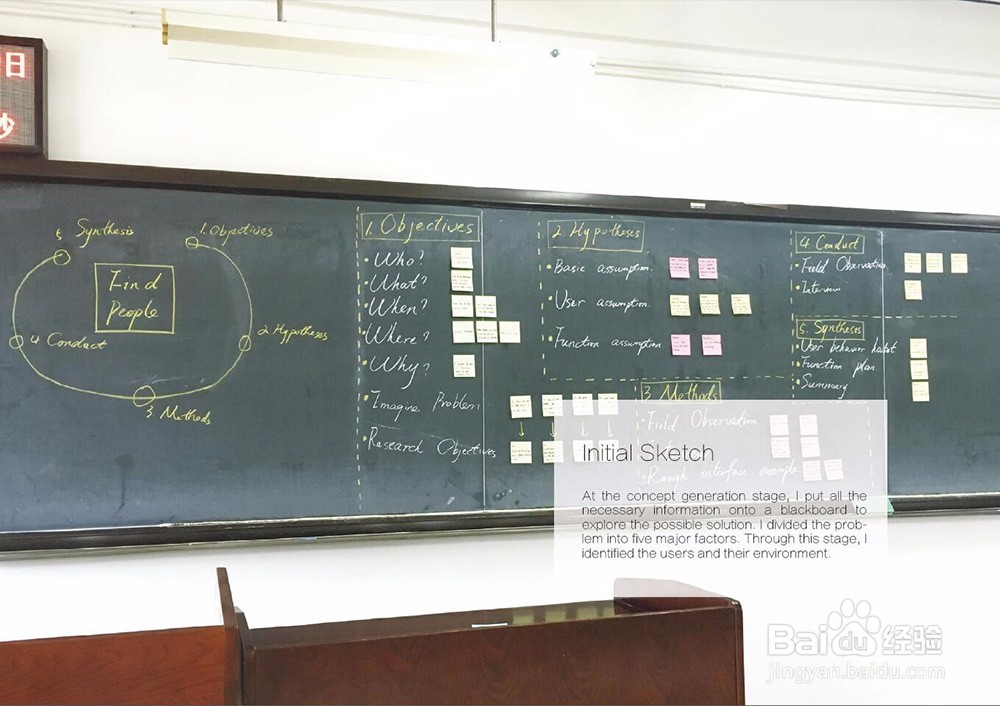 日
秒
5 Synthesis
1. Objectives
Find
People
2 Hypotheses
4 Conduct
3 Methods
1. Objectives
Who?
What?
When?
Where?
Why?
Imagine Problem
Research Objectives
2. Hypotheses
Basic assumption.
User assumption.
Function assumption
3 Methods
Field Observation
Rough interface example
4 Conduct
Field Observation
Interview
5. Synthesis
User behavior habit
Function plan
Summary
Initial Sketch
At the concept generation stage, I put all the
necessary information onto a blackboard to
explore the possible solution. I divided the prob-
lem into five major factors. Through this stage, I
identified the users and their environment.
Baidu经验
jingyan.baidu.com